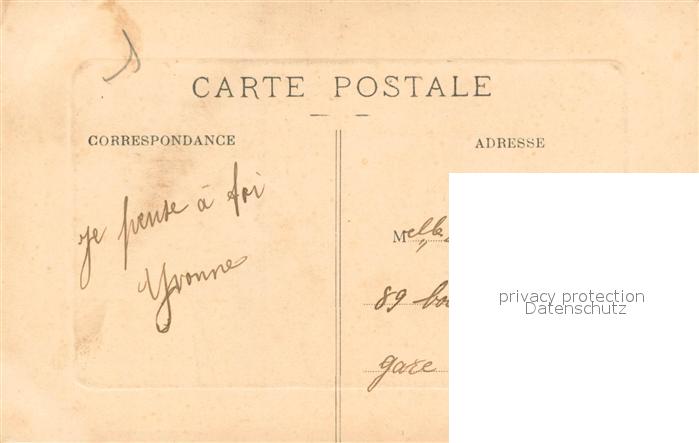 CARTE POSTALE
CORRESPONDANCE
ADRESSE
je pense à toi
Yvonne
Melle
89
gare
privacy protection
Datenschutz